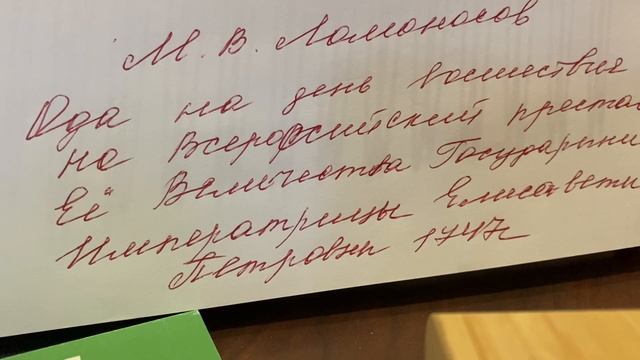 М. В. Ломоносов
Ода на день восшествия
на Всероссийский престол
Её Величества Государыни
Императрицы Елисаветы
Петровны 1747г